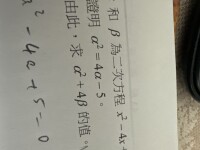 和 β 為二次方程 x² − 4x +
證明 α² = 4α − 5。
由此，求 α² + 4β 的值。
x² − 4x + 5 = 0